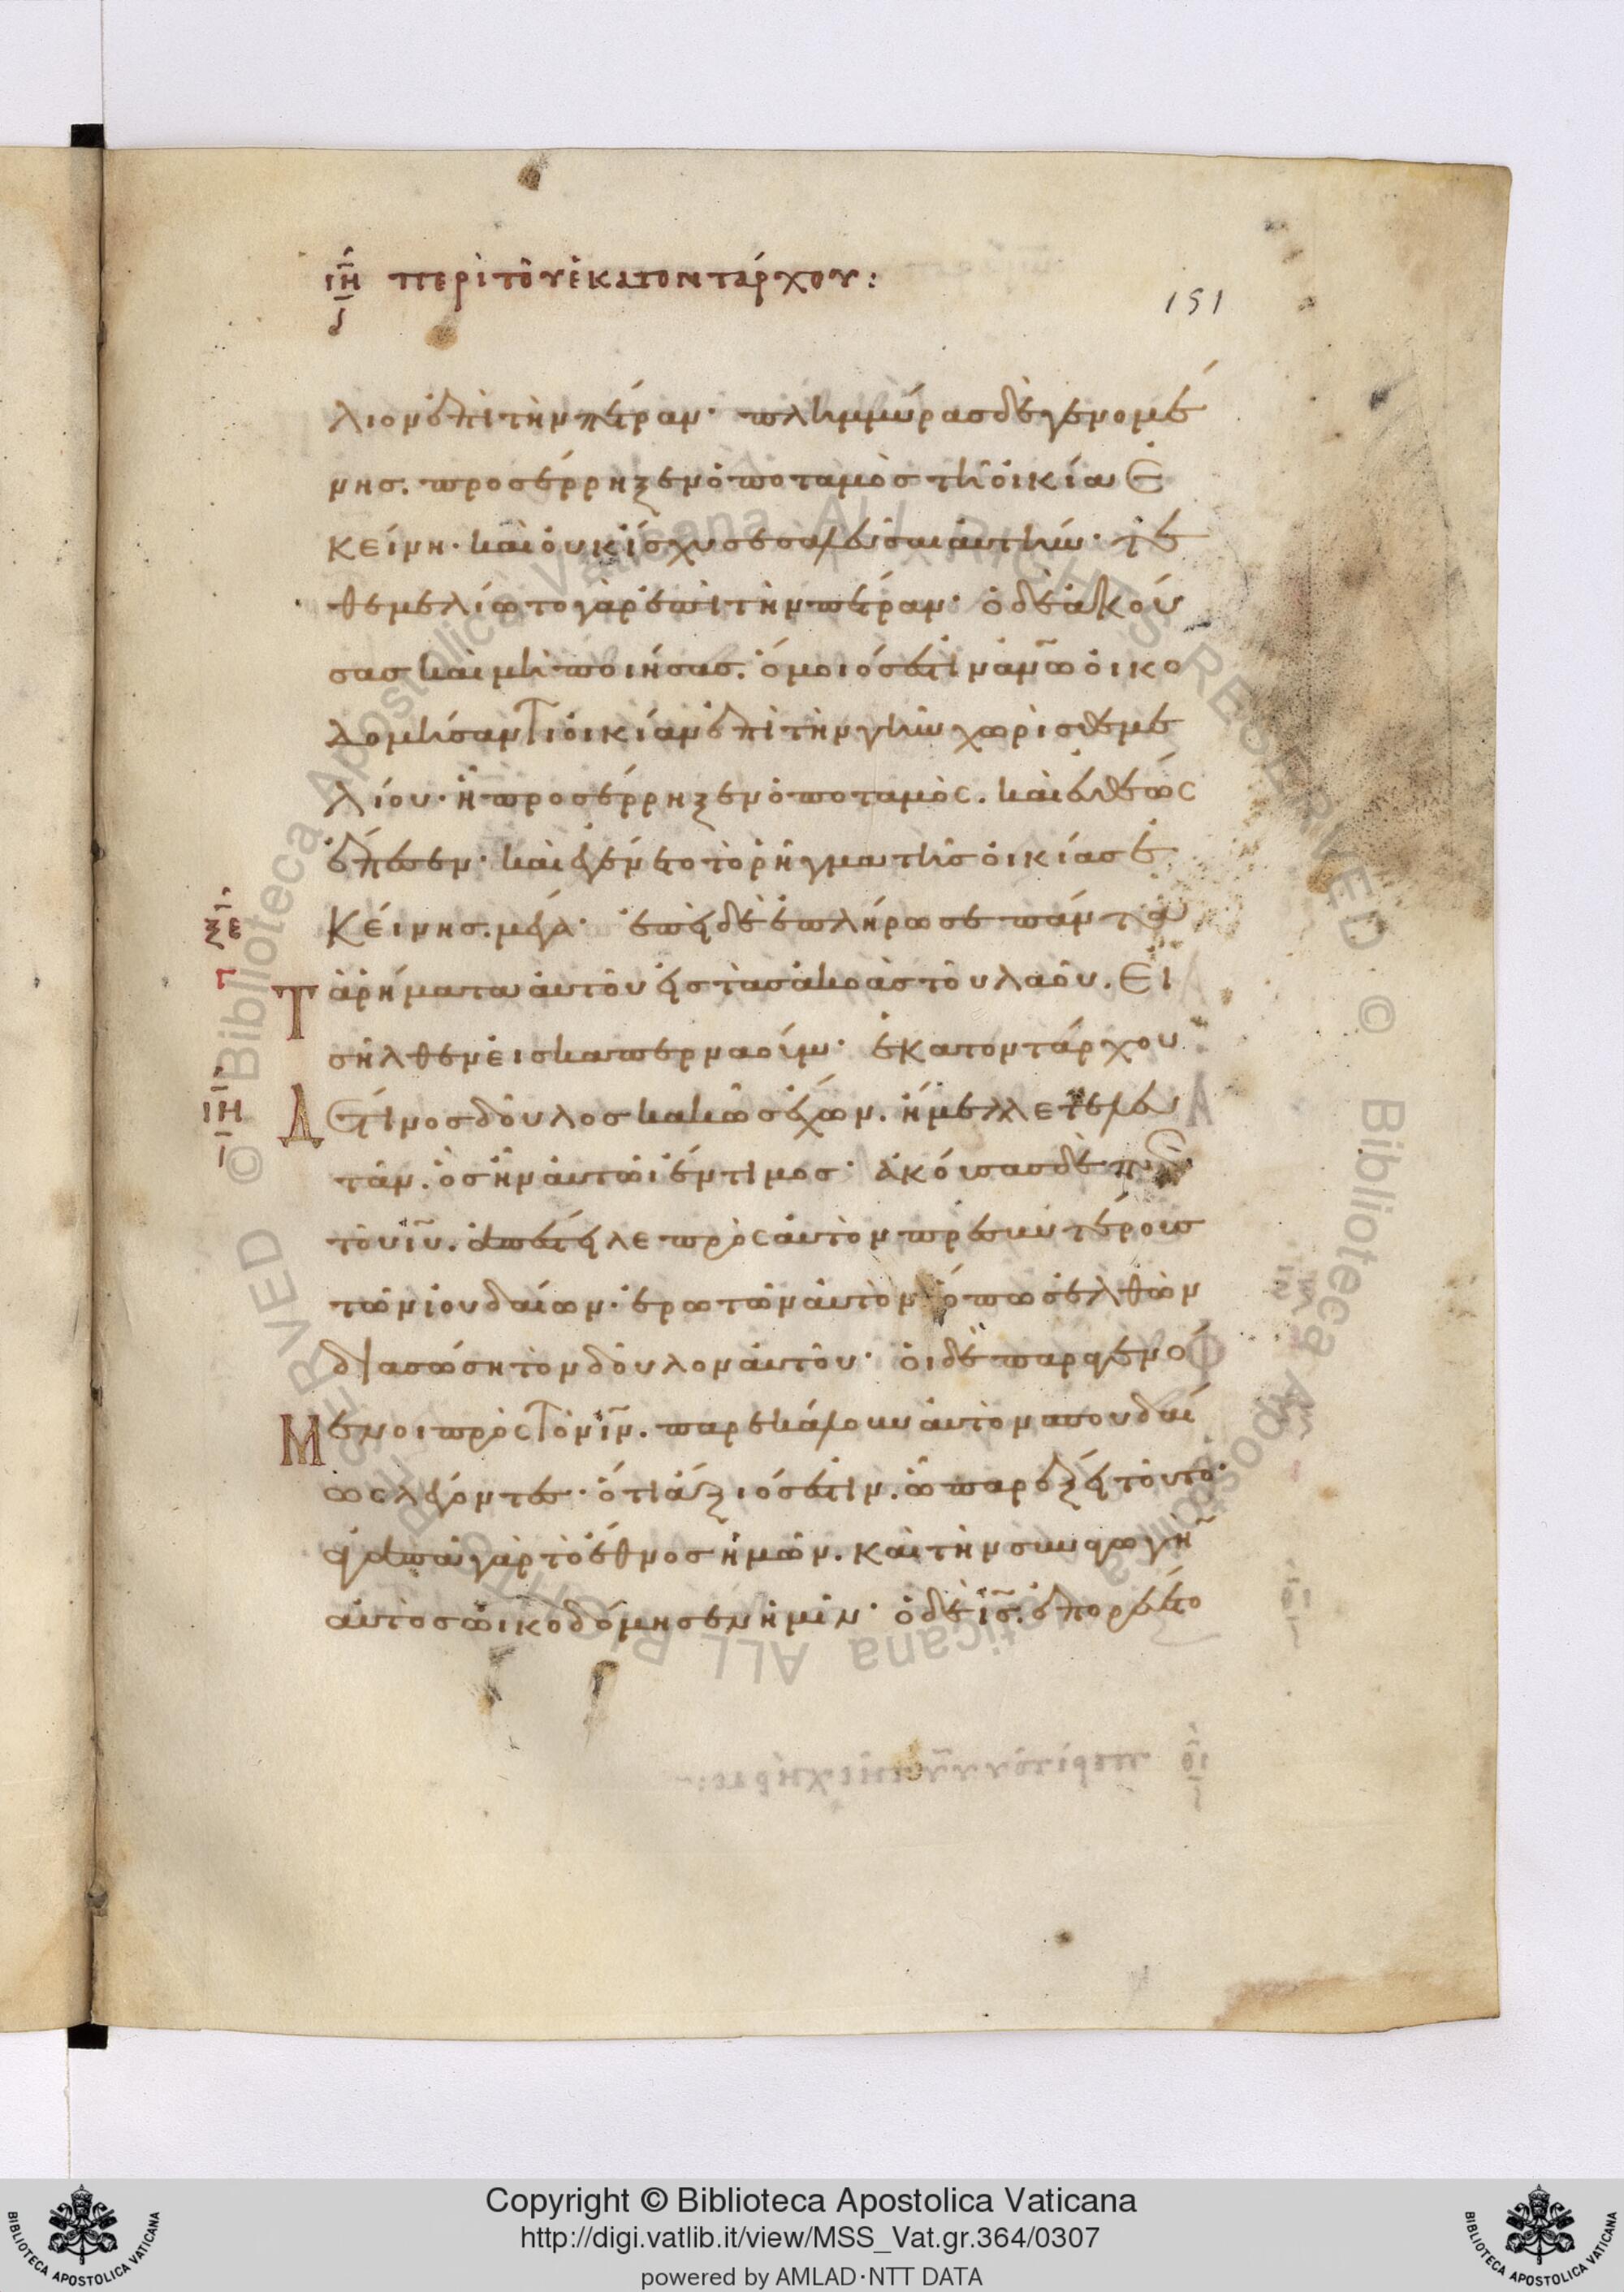 ιη περὶ τοῦ ἑκατοντάρχου:
δ
151
λιον ἐπὶ τὴν πέτραν· πλημμύρας δὲ γενομέ
νης. προσέρρηξεν ὁ ποταμὸς τῆ οἰκία ἐ
κείνη· καὶ οὐκ ἴσχυσε σαλεῦσαι αὐτήν· τε
θεμελίωτο γὰρ ἐπὶ τὴν πέτραν· ὁ δὲ ἀκού
σας καὶ μὴ ποιήσας. ὅμοιός ἐστιν ἀνω οἰκο
δομήσαντι οἰκίαν ἐπὶ τὴν γῆν χωρὶς θεμε
λίου· ἧ προσέρρηξεν ὁ ποταμὸς. καὶ εὐθέως
ἔπεσεν· καὶ ἐγένετο τὸ ρῆγμα τῆς οἰκίας ἐ
ξε κείνης. μέγα· ἐπεὶ δὲ ἐπλήρωσε πάντα
γ Τὰ ρήματα αὐτοῦ εἰς τὰς ἀκοὰς τοῦ λαοῦ. Εἰ
σῆλθεν εἰς καπερναούμ· ἑκατοντάρχου
ιη Δέ τινος δοῦλος κακῶς ἔχων. ἤμελλε τελευ
τάν. ὃς ἦν αὐτῶι ἔντιμος· ἀκούσας δὲ περὶ
τοῦ ιυ. ἀπέστειλε πρὸς αὐτὸν πρεσβυτέρους
τῶν ἰουδαίων. ἐρωτῶν αὐτὸν ὅπως ἐλθὼν
διασώση τὸν δοῦλον αὐτοῦ· οἱ δὲ παραγενό
Μενοι πρὸς τὸν ιν. παρεκάλουν αὐτὸν σπουδαί
ως λέγοντες· ὅτι ἄξιός ἐστιν. ὧ παρέξει τοῦτο·
ἀγαπᾶ γὰρ τὸ ἔθνος ἡμῶν. καὶ τὴν συναγωγὴ
αὐτὸς ὠικοδόμησεν ἡμῖν· ὁ δὲ ις. ἐπορεύετο
BIBLIOTECA APOSTOLICA VATICANA
Copyright © Biblioteca Apostolica Vaticana
http://digi.vatlib.it/view/MSS_Vat.gr.364/0307
powered by AMLAD·NTT DATA
BIBLIOTECA APOSTOLICA VATICANA